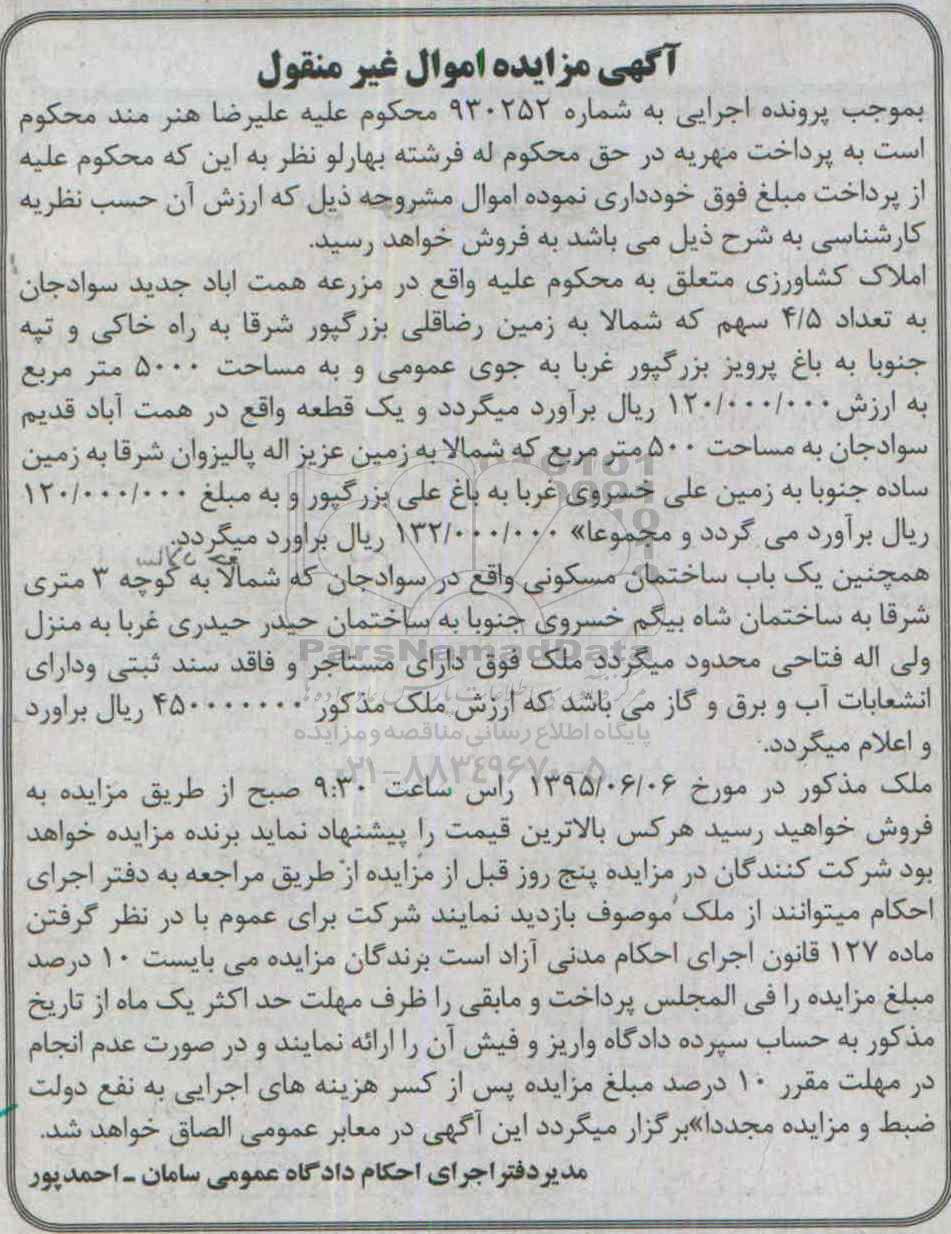 آگهی مزایده اموال غیر منقول
بموجب پرونده اجرایی به شماره ۹۳۰۲۵۲ محکوم علیه علیرضا هنر مند محکوم
است به پرداخت مهریه در حق محکوم له فرشته بهارلو نظر به این که محکوم علیه
از پرداخت مبلغ فوق خودداری نموده اموال مشروحه ذیل که ارزش آن حسب نظریه
کارشناسی به شرح ذیل می باشد به فروش خواهد رسید.
املاک کشاورزی متعلق به محکوم علیه واقع در مزرعه همت اباد جدید سوادجان
به تعداد ۴/۵ سهم که شمالا به زمین رضاقلی بزرگپور شرقا به راه خاکی و تپه
جنوبا به باغ پرویز بزرگپور غربا به جوی عمومی و به مساحت ۵۰۰۰ متر مربع
به ارزش ۱۲۰/۰۰۰/۰۰۰ ریال برآورد میگردد و یک قطعه واقع در همت آباد قدیم
سوادجان به مساحت ۵۰۰ متر مربع که شمالا به زمین عزیز اله پالیزوان شرقا به زمین
ساده جنوبا به زمین علی خسروی غربا به باغ علی بزرگپور و به مبلغ ۱۲۰/۰۰۰/۰۰۰
ریال برآورد می گردد و مجموعا» ۱۳۲/۰۰۰/۰۰۰ ریال براورد میگردد.
همچنین یک باب ساختمان مسکونی واقع در سوادجان که شمالا به کوچه ۳ متری
شرقا به ساختمان شاه بیگم خسروی جنوبا به ساختمان حیدر حیدری غربا به منزل
ولی اله فتاحی محدود میگردد ملک فوق دارای مستاجر و فاقد سند ثبتی ودارای
انشعابات آب و برق و گاز می باشد که ارزش ملک مذکور ۴۵۰۰۰۰۰۰۰ ریال براورد
و اعلام میگردد.
ملک مذکور در مورخ ۱۳۹۵/۰۶/۰۶ راس ساعت ۹:۳۰ صبح از طریق مزایده به
فروش خواهید رسید هرکس بالاترین قیمت را پیشنهاد نماید برنده مزایده خواهد
بود شرکت کنندگان در مزایده پنج روز قبل از مزایده از طریق مراجعه به دفتر اجرای
احکام میتوانند از ملک موصوف بازدید نمایند شرکت برای عموم با در نظر گرفتن
ماده ۱۲۷ قانون اجرای احکام مدنی آزاد است برندگان مزایده می بایست ۱۰ درصد
مبلغ مزایده را فی المجلس پرداخت و مابقی را ظرف مهلت حد اکثر یک ماه از تاریخ
مذکور به حساب سپرده دادگاه واریز و فیش آن را ارائه نمایند و در صورت عدم انجام
در مهلت مقرر ۱۰ درصد مبلغ مزایده پس از کسر هزینه های اجرایی به نفع دولت
ضبط و مزایده مجددا» برگزار میگردد این آگهی در معابر عمومی الصاق خواهد شد.
مدیر دفتر اجرای احکام دادگاه عمومی سامان - احمدپور
ParsNamadData
پایگاه اطلاع رسانی مناقصه و مزایده
۰۲۱-۸۸۳۴۹۶۷۰-۵